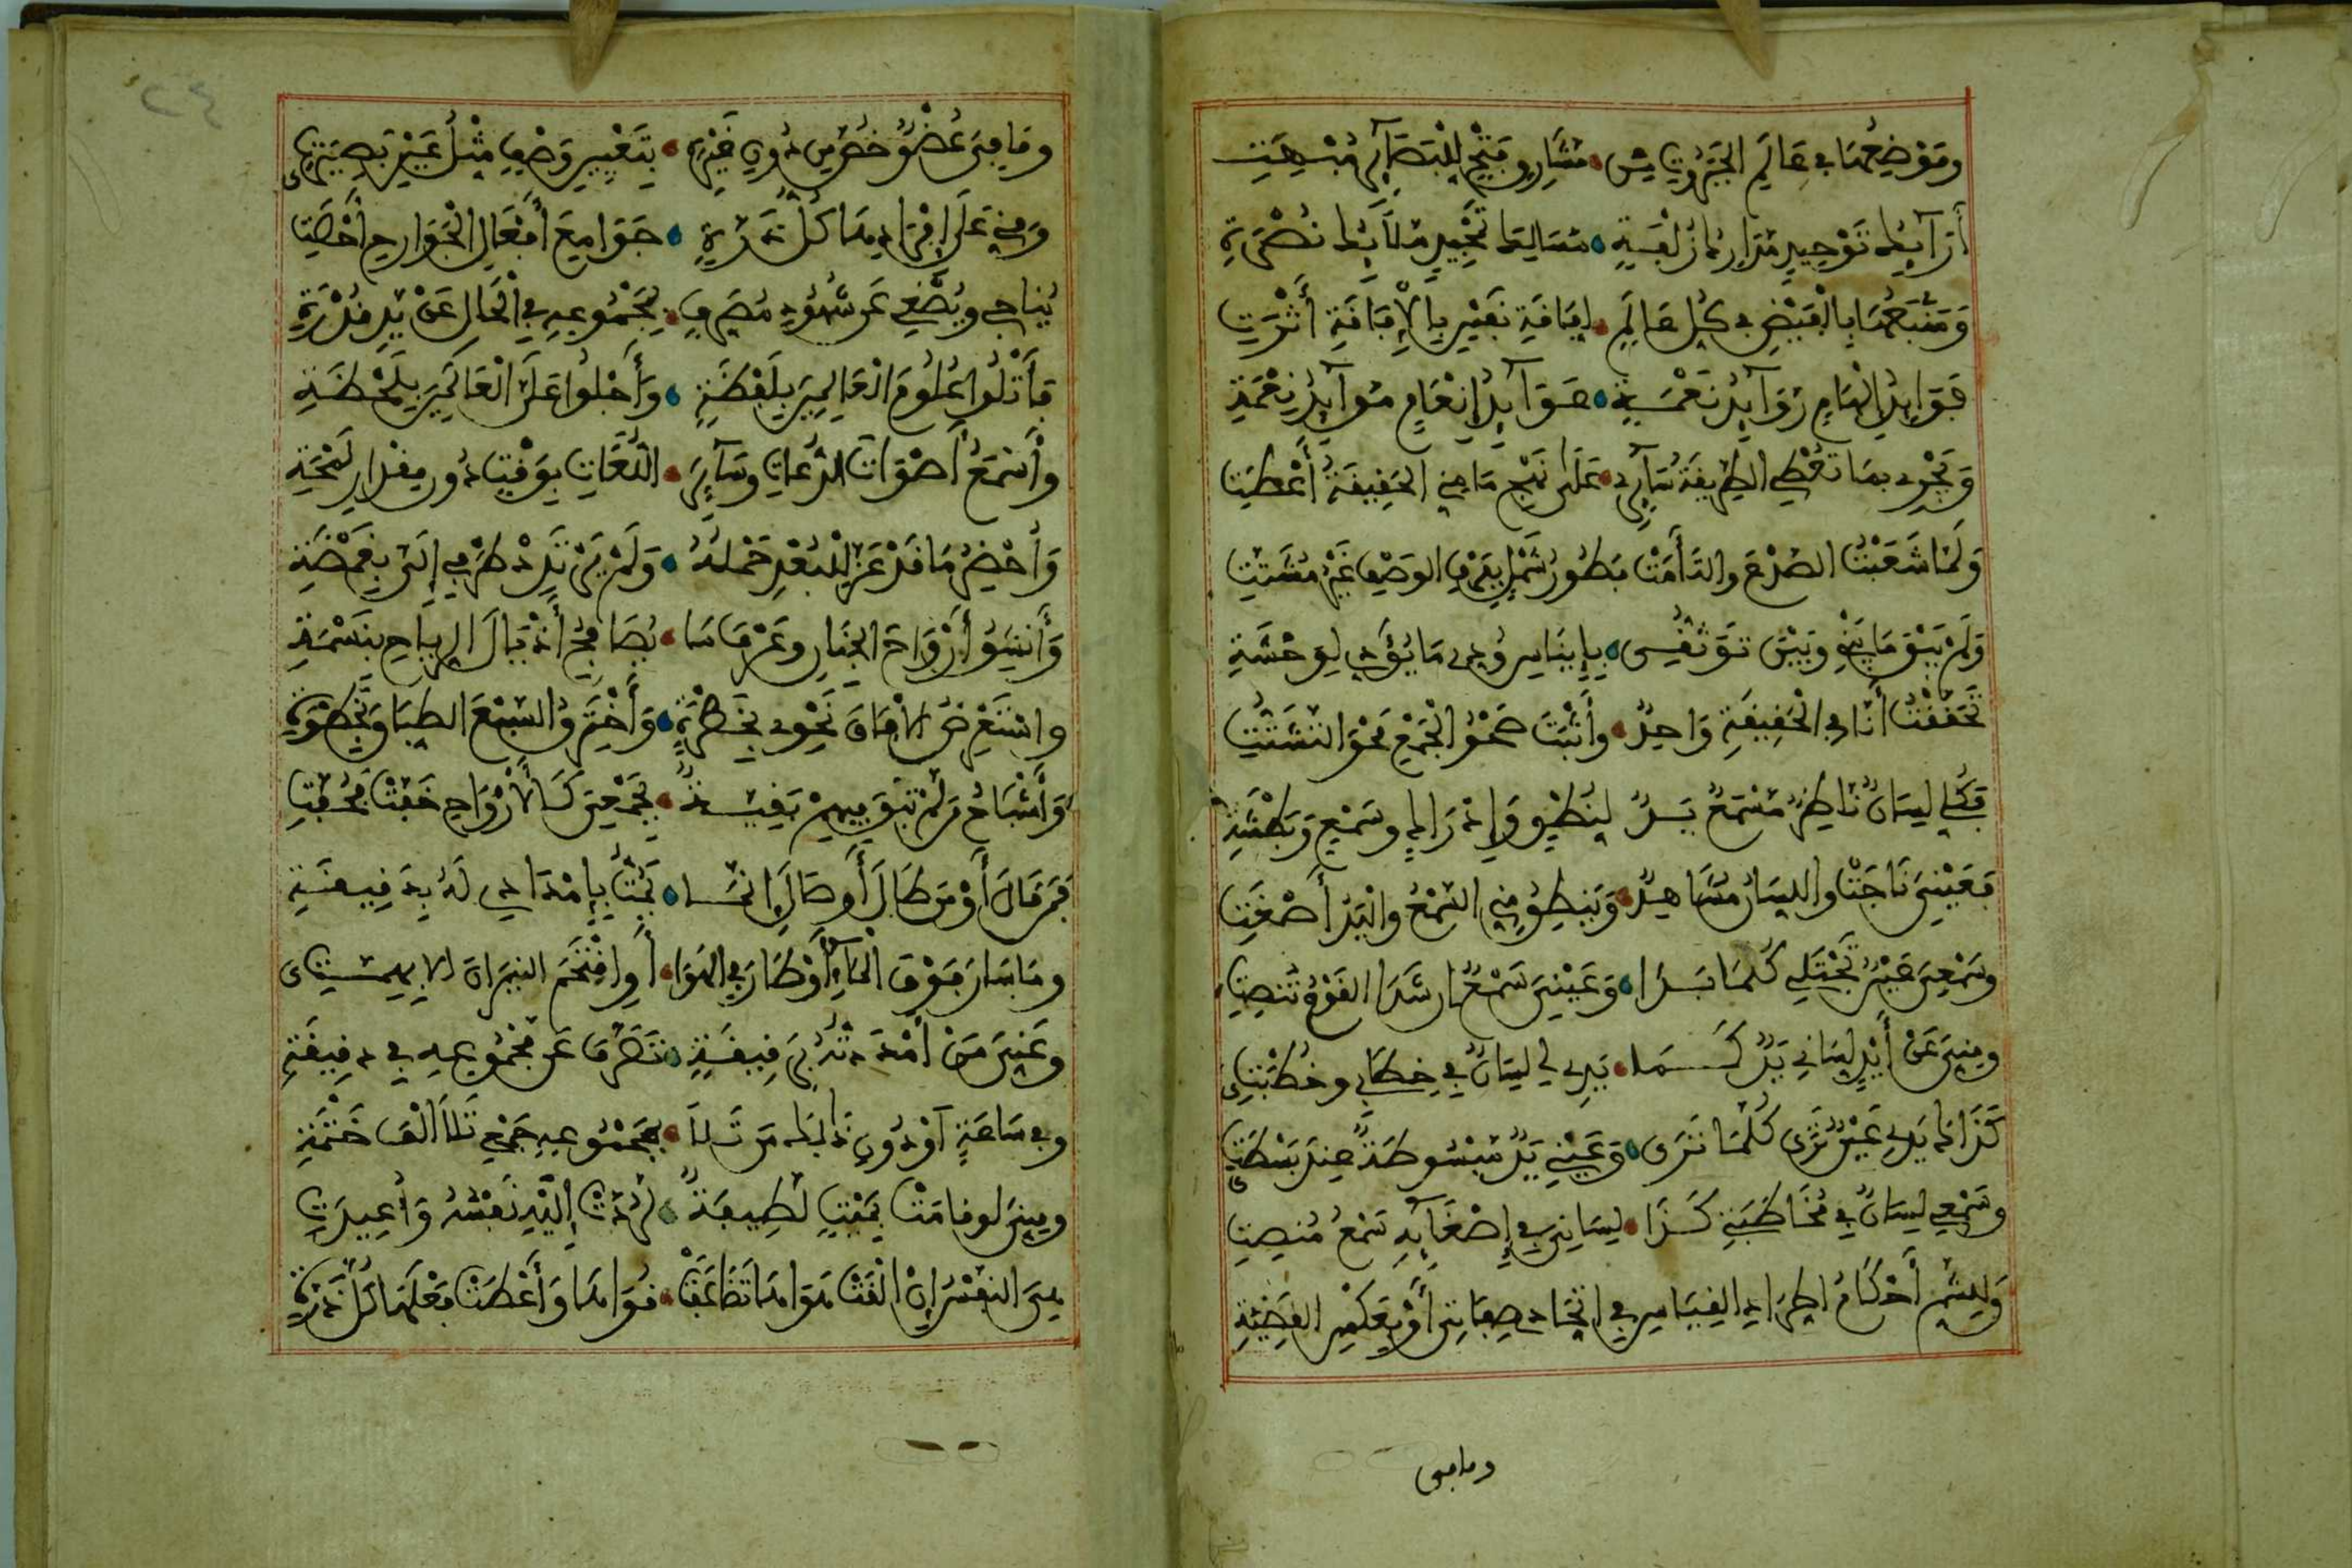 وموضعها في عالم الجبروت من • مشارق فتح للبصائر مبهت
أرآئك توحيد مدارك زلفة • مسالك تمجيد ملآئك نصرة
ومنبعها بالفيض في كل عالم • لفاقة نفس بالإفاقة أثرت
فوايد إلهام روآيد نعمة • عوآيد إنعام موآيد نعمة
ويجري بما تعطي الطريقة سآئري • على نهج ما مني الحقيقة أعطت
ولما شعبت الصدع والتأمت فطور شمل بفرق الوصف غير مشتت
ولم يبق ما بيني وبين توثقي • بإيناس ودي ما يؤدي لوحشة
تحققت أنا في الحقيقة واحد • وأثبت صحو الجمع محو التشتت
فكلي لسان ناظر مسمع يد لنطق وإدراك وسمع وبطشة
فعيني ناجت واللسان مشاهد • وينطق مني السمع واليد أصغت
وسمعي عين تجتلي كلما بدا • وعيني سمع إن شدا القوم تنصت
ومني عن أيد لساني يد كما • يدي لي لسان في خطابي وخطبتي
كذاك يدي عين ترى كلما ترى • وعيني يد مبسوطة عند بسطتي
وسمعي لسان في مخاطبتي كذا • لساني في إصغآئه سمع منصت
وللشم أحكام اطراد القياس في اتحاد صفاتي أو بعكس القضية
وما في
٢٤
وما في عضو خص من دون غيره • بتعيين وصف مثل عين بصيرتي
ومني على إفرادها كل ذرة • جوامع أفعال الجوارح أحصت
يناجي ويصغي عن شهود مصرف • بمجموعه في الحال عن يد قدرة
فأتلوا علوم العالمين بلفظة • وأجلوا علي العالمين بلحظة
وأسمع أصوات الدعات وسآئر • اللغات بوقت دون مقدار لمحة
وأحضر ما قد عز للبعد حمله • ولم يرتدد طرفي إلي بغمضة
وأنشق أرواح الجنان وعرف ما • يصافح أذيال الرياح بنسمة
واستعرض الافاق نحوي بخطرة • وأخترق السبع الطباق بخطوة
وأشباح من لم تبق فيهم بقية • بجمعي كالأرواح خفت فخفت
فمن قال أو من طال أو صال إنما • يمت بإمدادي له برقيقة
وما سار فوق المآء أو طار في الهوا • أو اقتحم النيران الا بهمتي
وعني من أمددته برقيقة • تصرف عن مجموعه في دقيقة
وفي ساعة أو دون ذلك من تلا • بمجموعه جمعي تلا ألف ختمة
ومني لو قامت بميت لطيفة • لردت إليه نفسه وأعيدت
هي النفس إن ألقت هواها تضاعفت • قواها وأعطت فعلها كل ذرة